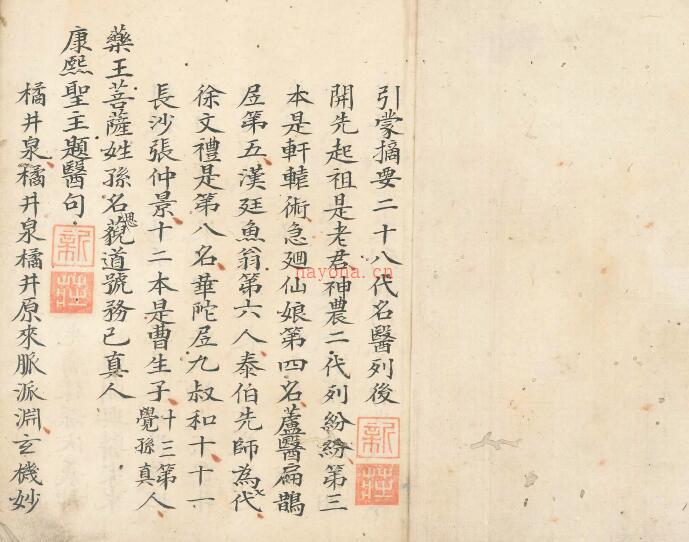 引蒙摘要二十八代名醫列後
開先起祖是老君神農二代列紛紛第三
本是軒轅術急廻仙娘第四名蘆醫扁鵲
居第五漢廷魚翁第六人泰伯先師為代
徐文禮是第八名華陀居九叔和十十一
長沙張仲景十二本是曹生子十三第覺孫真人
藥王菩薩姓孫名藐思道號務已真人
康熙聖主題醫句
橘井泉橘井泉橘井原來脈派淵玄機妙
新莊
新莊
nayona.cn